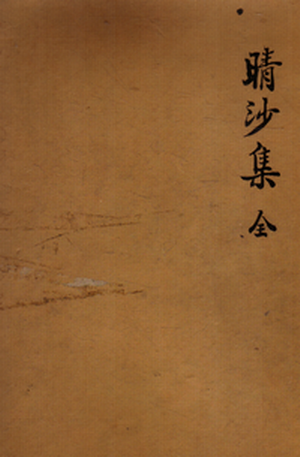 晴沙集 全